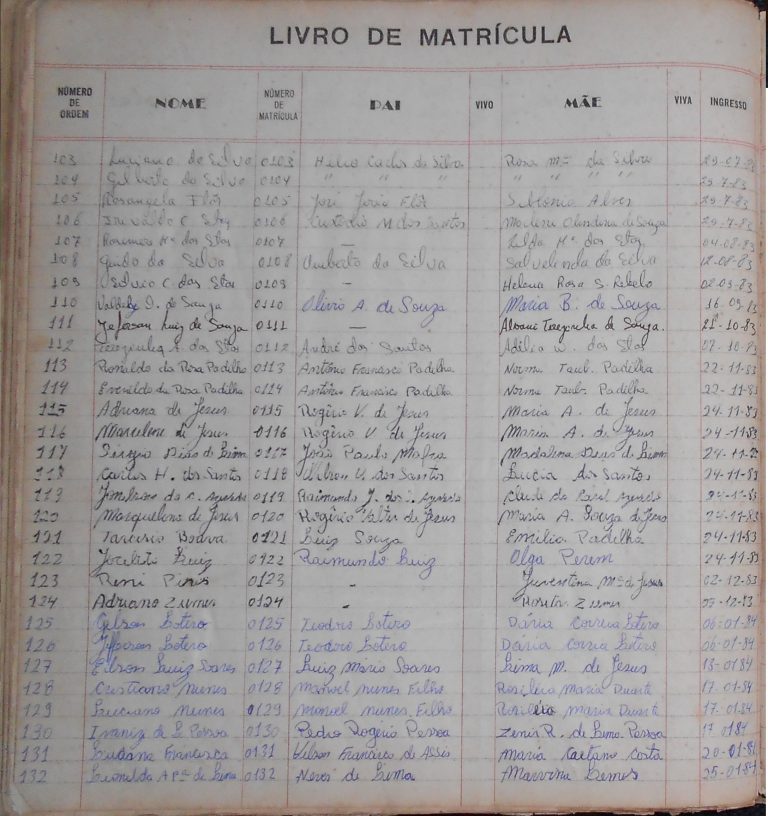 LIVRO DE MATRÍCULA
NÚMERO DE ORDEM NOME NÚMERO DE MATRÍCULA PAI VIVO MÃE VIVA INGRESSO
103 Luciano da Silva 0103 Hélio Carlos da Silva Rosa Mª da Silva 29-07-83
104 Gilberto da Silva 0104 " " " " " " 29-7-83
105 Rosangela Flôr 0105 José João Flôr Sidônia Alves 29-7-83
106 C. 0106 M. dos Santos Marlene de Souza 29-7-83
107 Rosimere Mª dos Stos 0107 — Zilda Mª dos Stos 04-08-83
108 Guido da Silva 0108 Umberto da Silva da Silva 12-08-83
109 C. dos Stos 0109 - Helena Rosa S. Rebelo 02-09-83
110 de Souza 0110 Olivio A. de Souza Maria B. de Souza 16-09-83
111 Jeferson Luiz de Souza 0111 — Terezinha de Souza 21-10-83
112 Terezinha A. dos Stos 0112 André dos Santos Adélia W. dos Stos 07-10-83
113 Ronaldo da Rosa Padilha 0113 Antônio Francisco Padilha Norma Taub. Padilha 22-11-83
114 Eronildo da Rosa Padilha 0114 Antônio Francisco Padilha Norma Taub. Padilha 22-11-83
115 Adriana de Jesus 0115 Rogério V. de Jesus Maria A. de Jesus 24-11-83
116 Marcelene de Jesus 0116 Rogério V. de Jesus Maria A. de Jesus 24-11-83
117 Sérgio Dias de Lima 0117 João Paulo Mafra Madalena Dias de Lima 24-11-83
118 Carlos H. dos Santos 0118 Wilson V. dos Santos Lucia dos Santos 24-11-83
119 0119 Raimundo 24-11-83
120 Masquelene de Jesus 0120 Rogério Valter de Jesus Maria A. Souza de Jesus 24-11-83
121 Tarcisio Boava 0121 Luiz Souza Emilia Padelha 24-11-83
122 Jocelito Luiz 0122 Raimundo Luiz Olga Perem 24-11-83
123 Reni Pires 0123 Juventina Mª de Jesus 02-12-83
124 Adriano Zumer 0124 - Zumer 07-12-83
125 Gilson Sotero 0125 Teodoro Sotero Dária Correia Sotero 06-01-84
126 Jefferson Sotero 0126 Teodoro Sotero Dária Correia Sotero 06-01-84
127 Edson Luiz Soares 0127 Luiz Mário Soares Lima M. de Jesus 13-0184
128 Cristiano Nunes 0128 Manoel Nunes Filho Rosiléia Maria Duarte 17-01-84
129 Luciano Nunes 0129 Manoel Nunes Filho Rosiléia Maria Duarte 17-01-84
130 de L. Pessoa 0130 Pedro Rogério Pessoa Zenir R. de Lima Pessoa 17 0184
131 Luciana Francisca 0131 Wilson Francisco de Assis Maria Caetano Costa 20-01-84
132 Leonilda Apª de Lima 0132 Nerei de Lima Marvina Lemes 25-01-84